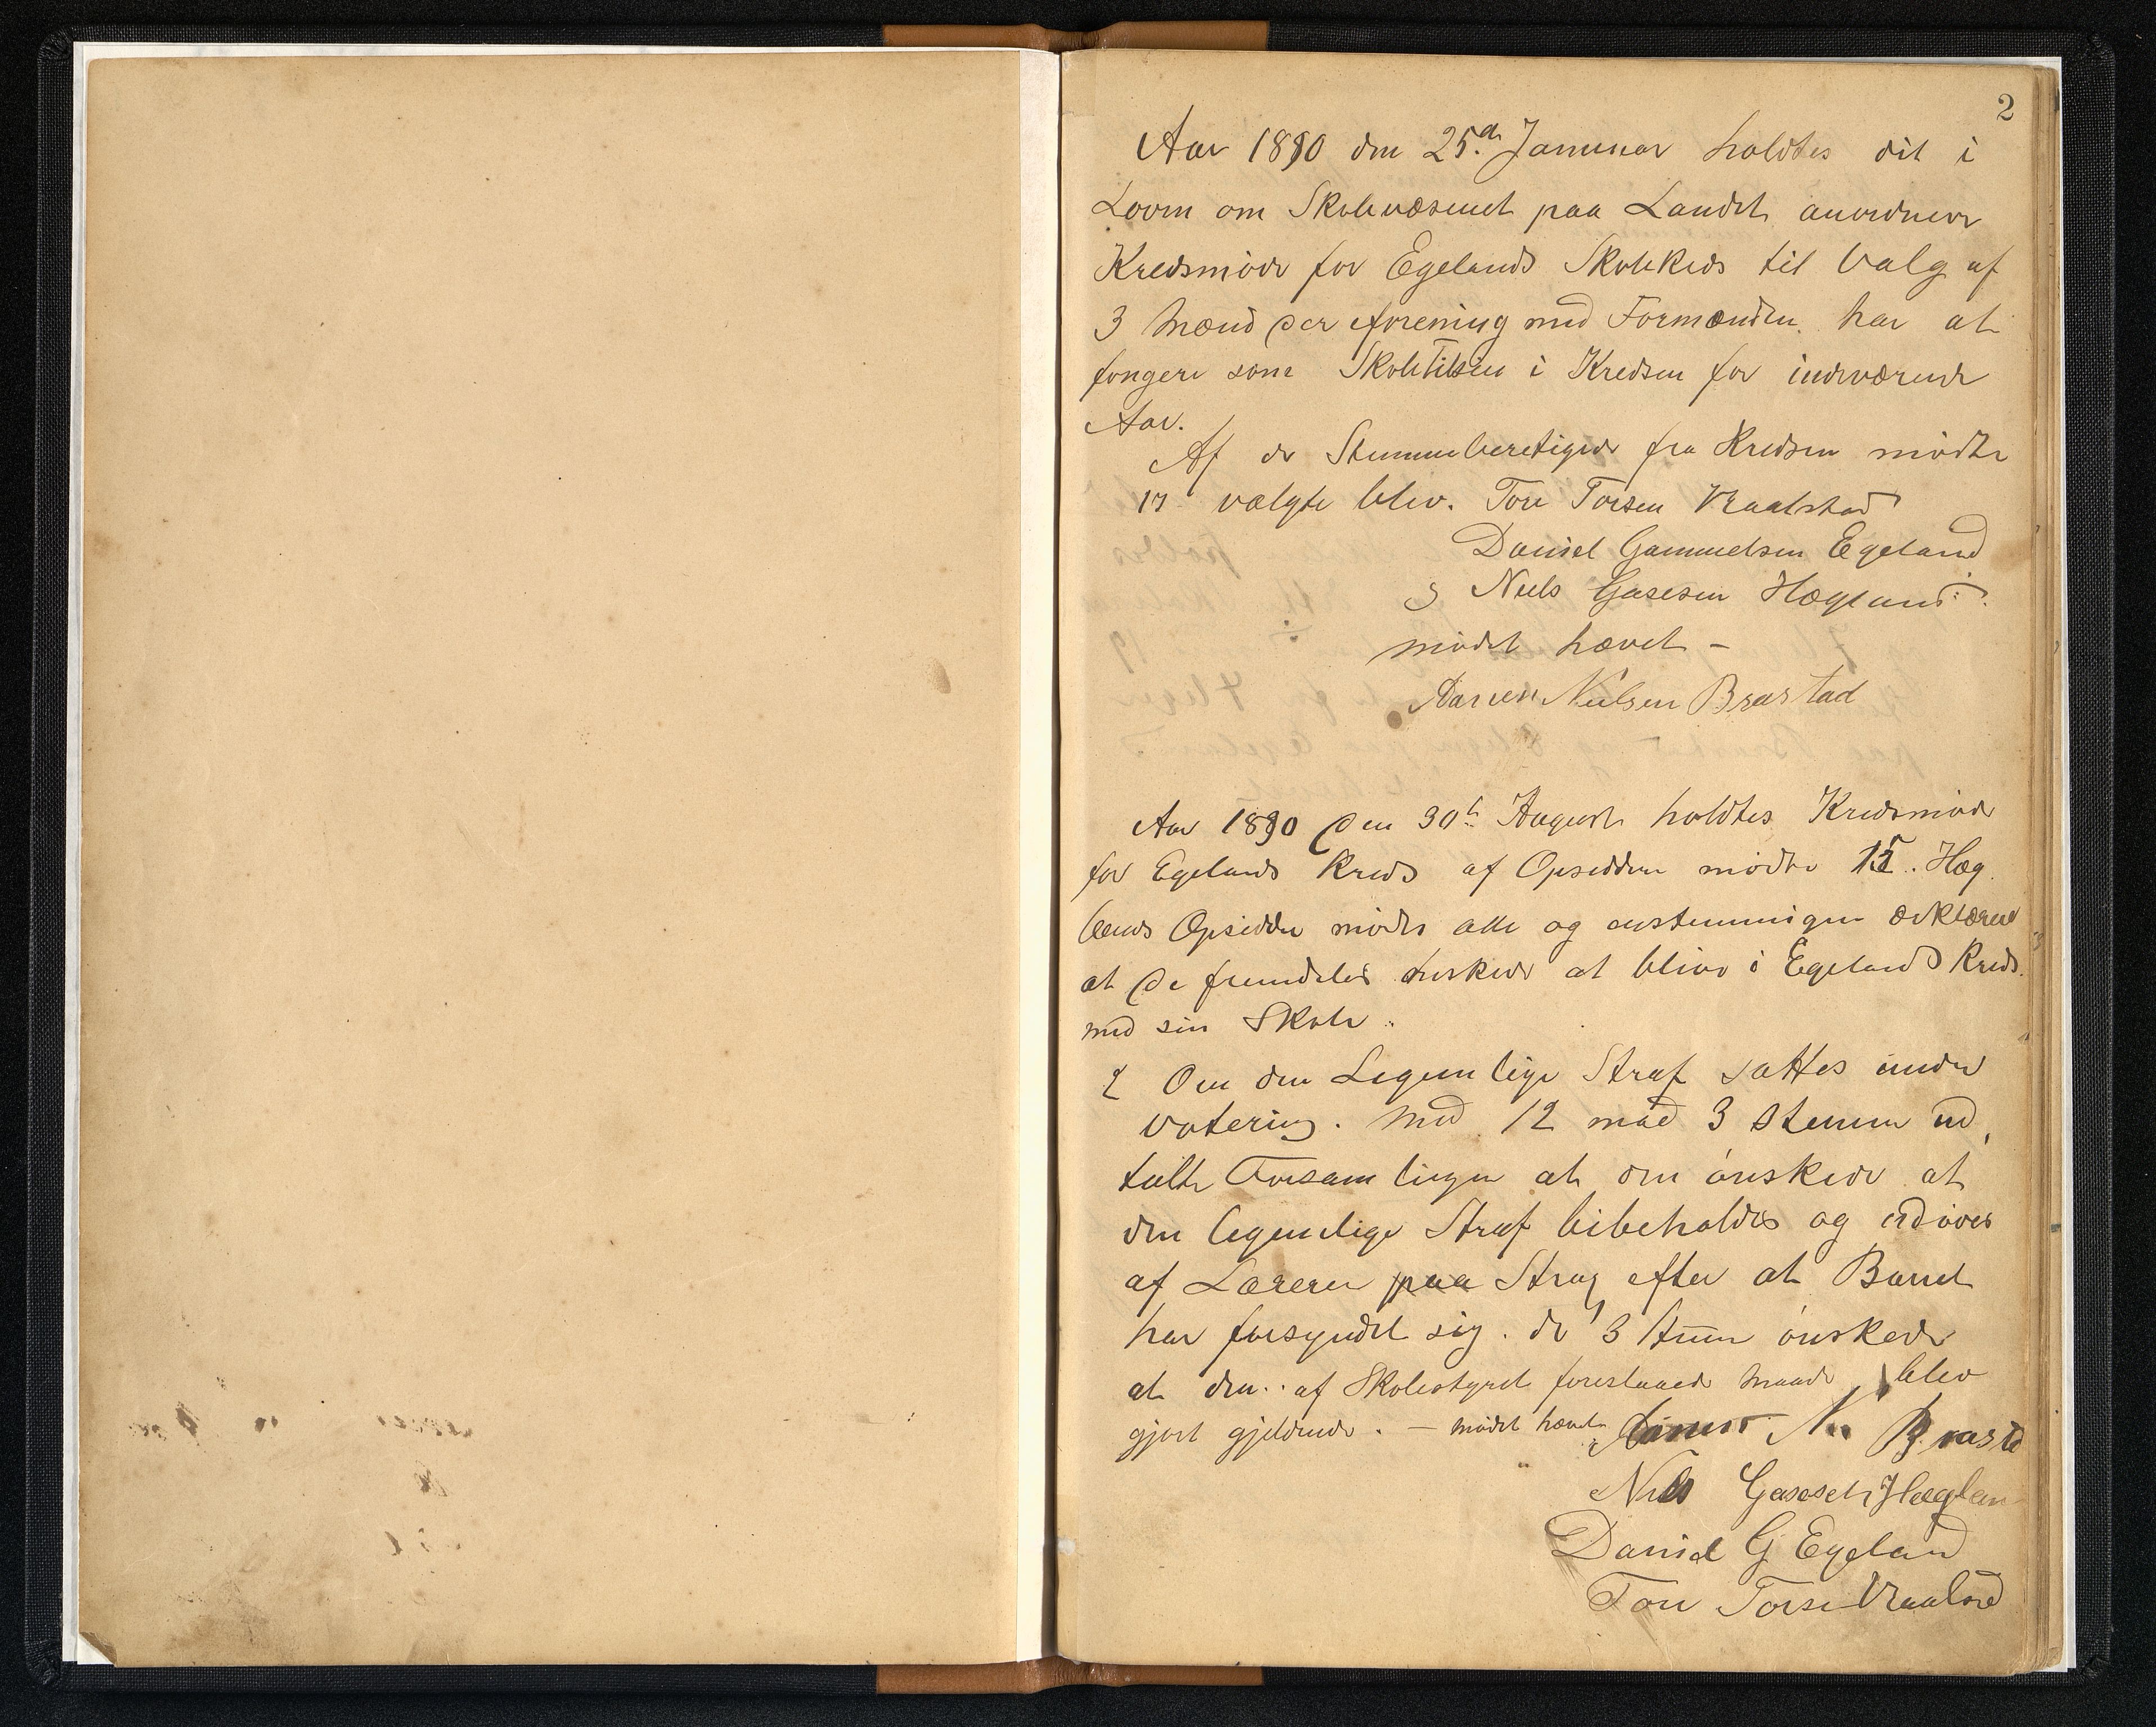 2
Aar 1890 den 25.d Januar holdtes det i
Loven om Skolevæsenet paa Landet anordnede
Kredsmöde for Egelands Skolekreds til Valg af
3 Mænd der i forening med Formanden har at
fungere som Skoletilsin i Kredsen for indeværende
Aar.
Af de Stemmeberetigede fra Kredsen mödte
17 valgte blev. Tore Torsen Vraalstad
Daniel Gammelsen Egeland
3 Niels Gasesen Hægland
mödet hævet –
Nielsen Brastad
Aar 1890 den 30te August holdtes Kredsmöde
for Egelands Kreds af Opsiddere mödte 15. Hæg
lands Opsiddere mödte alle og enstemmigen ærklærede
at de fremdeles önskede at blive i Egeland Kreds
med sin Skole.
2 Om den Legemlige Straf sattes under
votering. Med 12 mod 3 Stemmer ud,
talte Forsamlingen at den önskede at
den legemlige Straf bibeholdes og udöves
af Læreren paa Strag efter at Barnet
har forsyndet sig. de 3 Stemmer önskede
at den af Skolestyret foreslaaede Maade blev
gjort gjeldende. – mödet hævet N. Brasta
Niels Gasesen Hæglan
Daniel G Egeland
Tore Torse Vraalsd